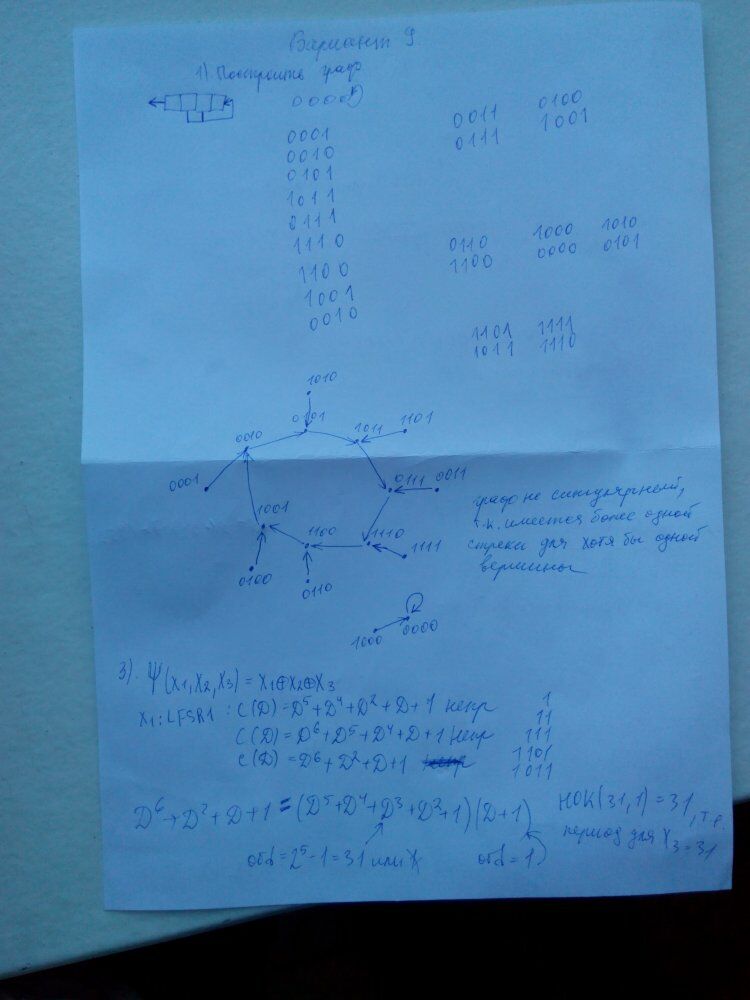 Вариант 9.
1) Построить граф
0000
0001
0010
0101
1011
0111
1110
1100
1001
0010
0011 0100
0111 1001
0110 1000 1010
1100 0000 0101
1101 1111
1011 1110
1010
0101
0010
1011
1101
0001
0111
0011
1001
1100
1110
1111
0100
0110
1000
0000
граф не сингулярный,
т.к. имеется более одной
стрелки для хотя бы одной
вершины
3). Ψ(x1, x2, x3) = x1⊕x2⊕x3
x1: LFSR1 : C(D) = D⁵+D⁴+D²+D+1 непр
C(D) = D⁶+D⁵+D⁴+D+1 непр
C(D) = D⁶+D²+D+1
1
11
111
1101
1011
D⁶+D²+D+1 = (D⁵+D⁴+D³+D²+1)(D+1)
НОК(31,1) = 31, т.е.
период для x3 = 31
= 2⁵-1 = 31 или
= 1